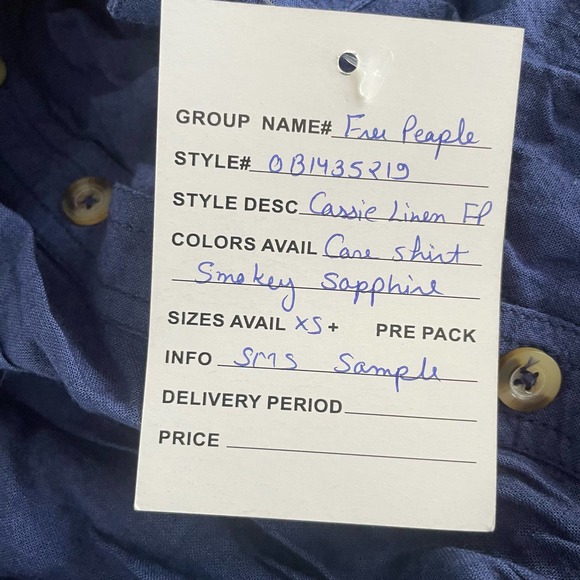 GROUP NAME# Free Peaple
STYLE# OB1435219
STYLE DESC Cassie Linen FP
COLORS AVAIL Care shirt
Smokey Sapphire
SIZES AVAIL XS+ PRE PACK
INFO SMS Sample
DELIVERY PERIOD
PRICE